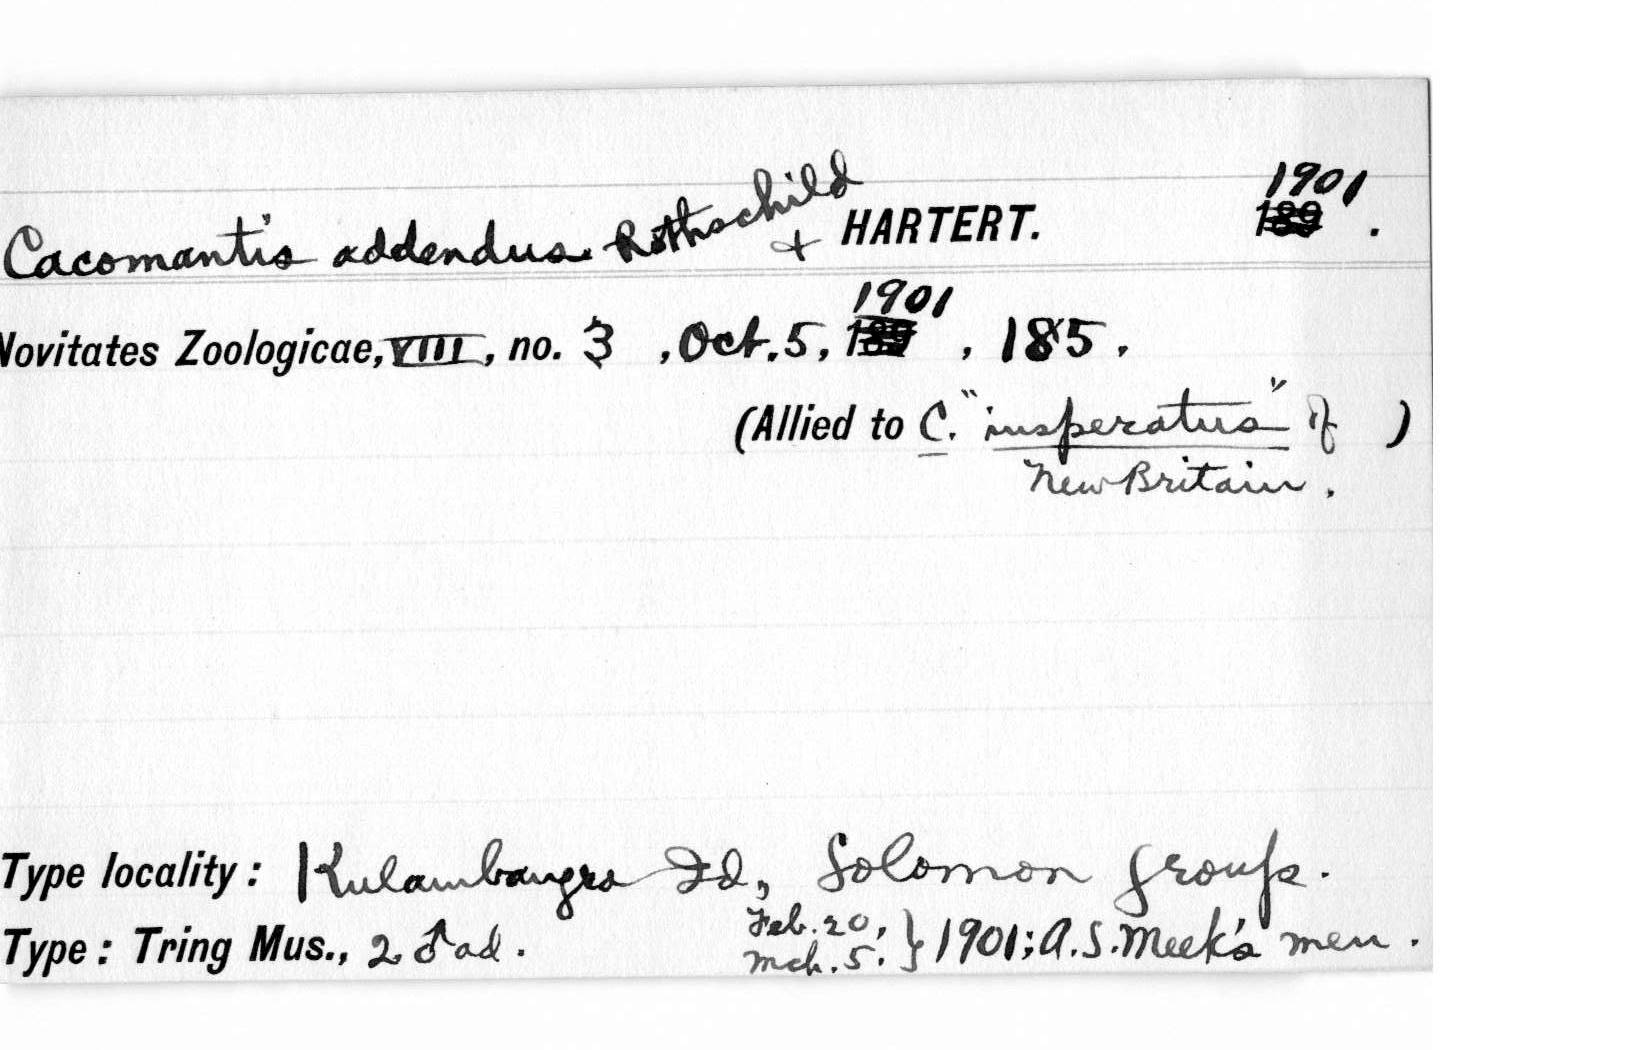 1901
Cacomantis addendus Rothschild & HARTERT. 189 .
1901
Novitates Zoologicae, VIII, no. 3 , Oct. 5, 189 , 185 .
(Allied to C. "insperatus" of )
New Britain .
Type locality : Kulambangra Id, Solomon Group .
Type : Tring Mus., 2 ♂ ad . Feb. 20, } 1901; A.S. Meek's men .
Mch. 5.